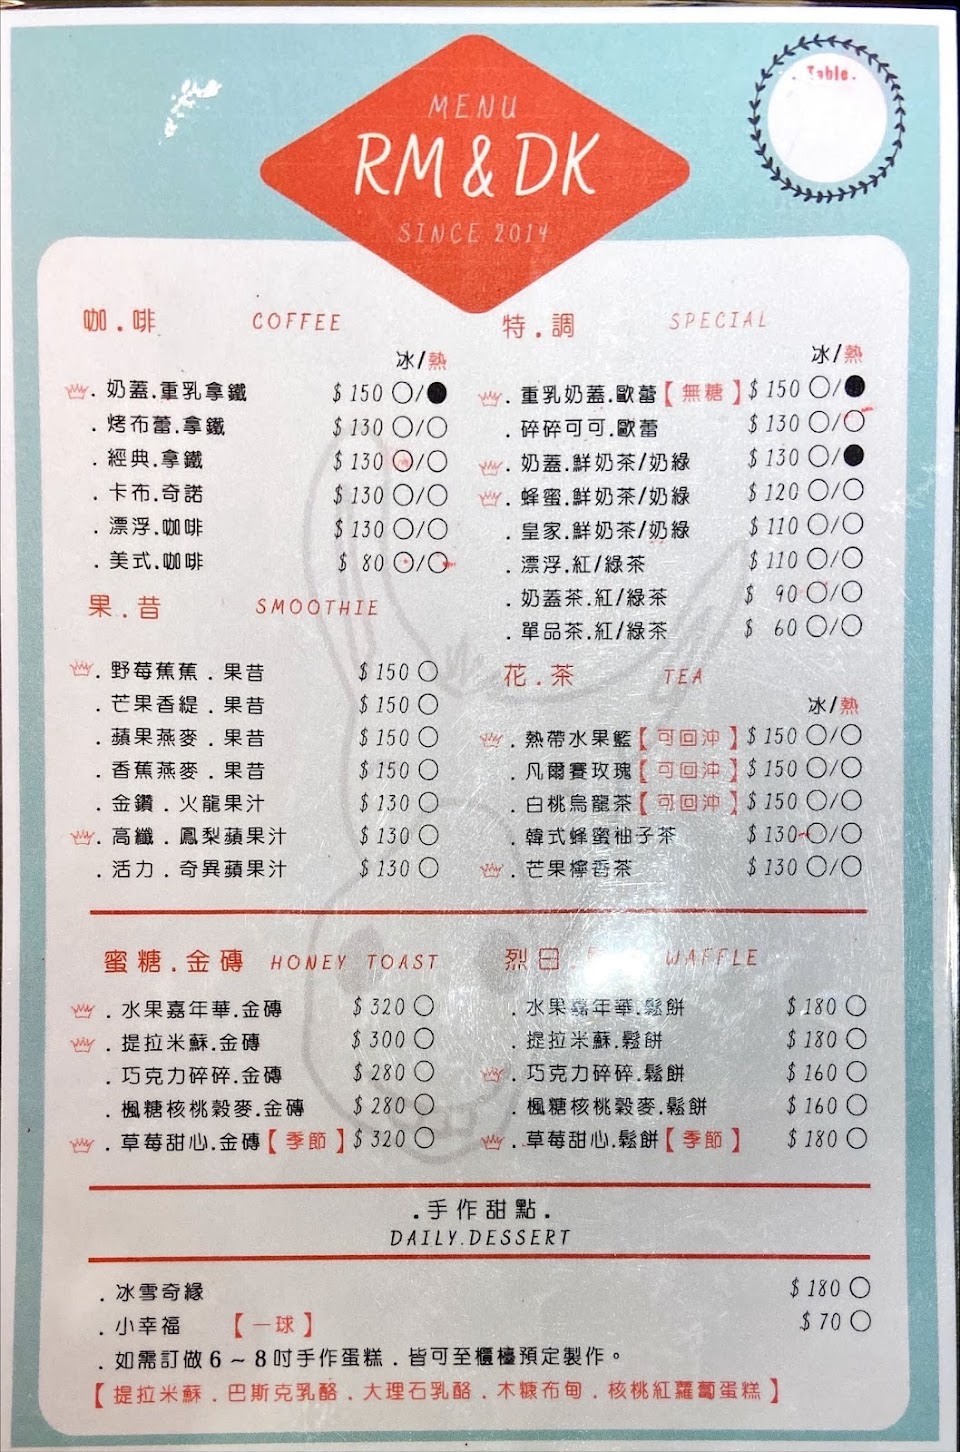 Table.
MENU
RM & DK
SINCE 2014
咖.啡 COFFEE
冰/熱
.奶蓋.重乳拿鐵 $150 ○/●
.烤布蕾.拿鐵 $130 ○/○
.經典.拿鐵 $130 ○/○
.卡布.奇諾 $130 ○/○
.漂浮.咖啡 $130 ○/○
.美式.咖啡 $ 80 ○/○
果.昔 SMOOTHIE
.野莓蕉蕉.果昔 $150 ○
.芒果香緹.果昔 $150 ○
.蘋果燕麥.果昔 $150 ○
.香蕉燕麥.果昔 $150 ○
.金鑽.火龍果汁 $130 ○
.高纖.鳳梨蘋果汁 $130 ○
.活力.奇異蘋果汁 $130 ○
特.調 SPECIAL
冰/熱
.重乳奶蓋.歐蕾【無糖】$150 ○/●
.碎碎可可.歐蕾 $130 ○/○
.奶蓋.鮮奶茶/奶綠 $130 ○/●
.蜂蜜.鮮奶茶/奶綠 $120 ○/○
.皇家.鮮奶茶/奶綠 $110 ○/○
.漂浮.紅/綠茶 $110 ○/○
.奶蓋茶.紅/綠茶 $ 90 ○/○
.單品茶.紅/綠茶 $ 60 ○/○
花.茶 TEA
冰/熱
.熱帶水果籃【可回沖】$150 ○/○
.凡爾賽玫瑰【可回沖】$150 ○/○
.白桃烏龍茶【可回沖】$150 ○/○
.韓式蜂蜜柚子茶 $130 ○/○
.芒果檸香茶 $130 ○/○
蜜糖.金磚 HONEY TOAST
.水果嘉年華.金磚 $320 ○
.提拉米蘇.金磚 $300 ○
.巧克力碎碎.金磚 $280 ○
.楓糖核桃穀麥.金磚 $280 ○
.草莓甜心.金磚【季節】$320 ○
烈日. WAFFLE
.水果嘉年華.鬆餅 $180 ○
.提拉米蘇.鬆餅 $180 ○
.巧克力碎碎.鬆餅 $160 ○
.楓糖核桃穀麥.鬆餅 $160 ○
.草莓甜心.鬆餅【季節】 $180 ○
.手作甜點.
DAILY.DESSERT
.冰雪奇緣 $180 ○
.小幸福 【一球】 $70 ○
.如需訂做6~8吋手作蛋糕.皆可至櫃檯預定製作。
【提拉米蘇.巴斯克乳酪.大理石乳酪.木糠布甸.核桃紅蘿蔔蛋糕】